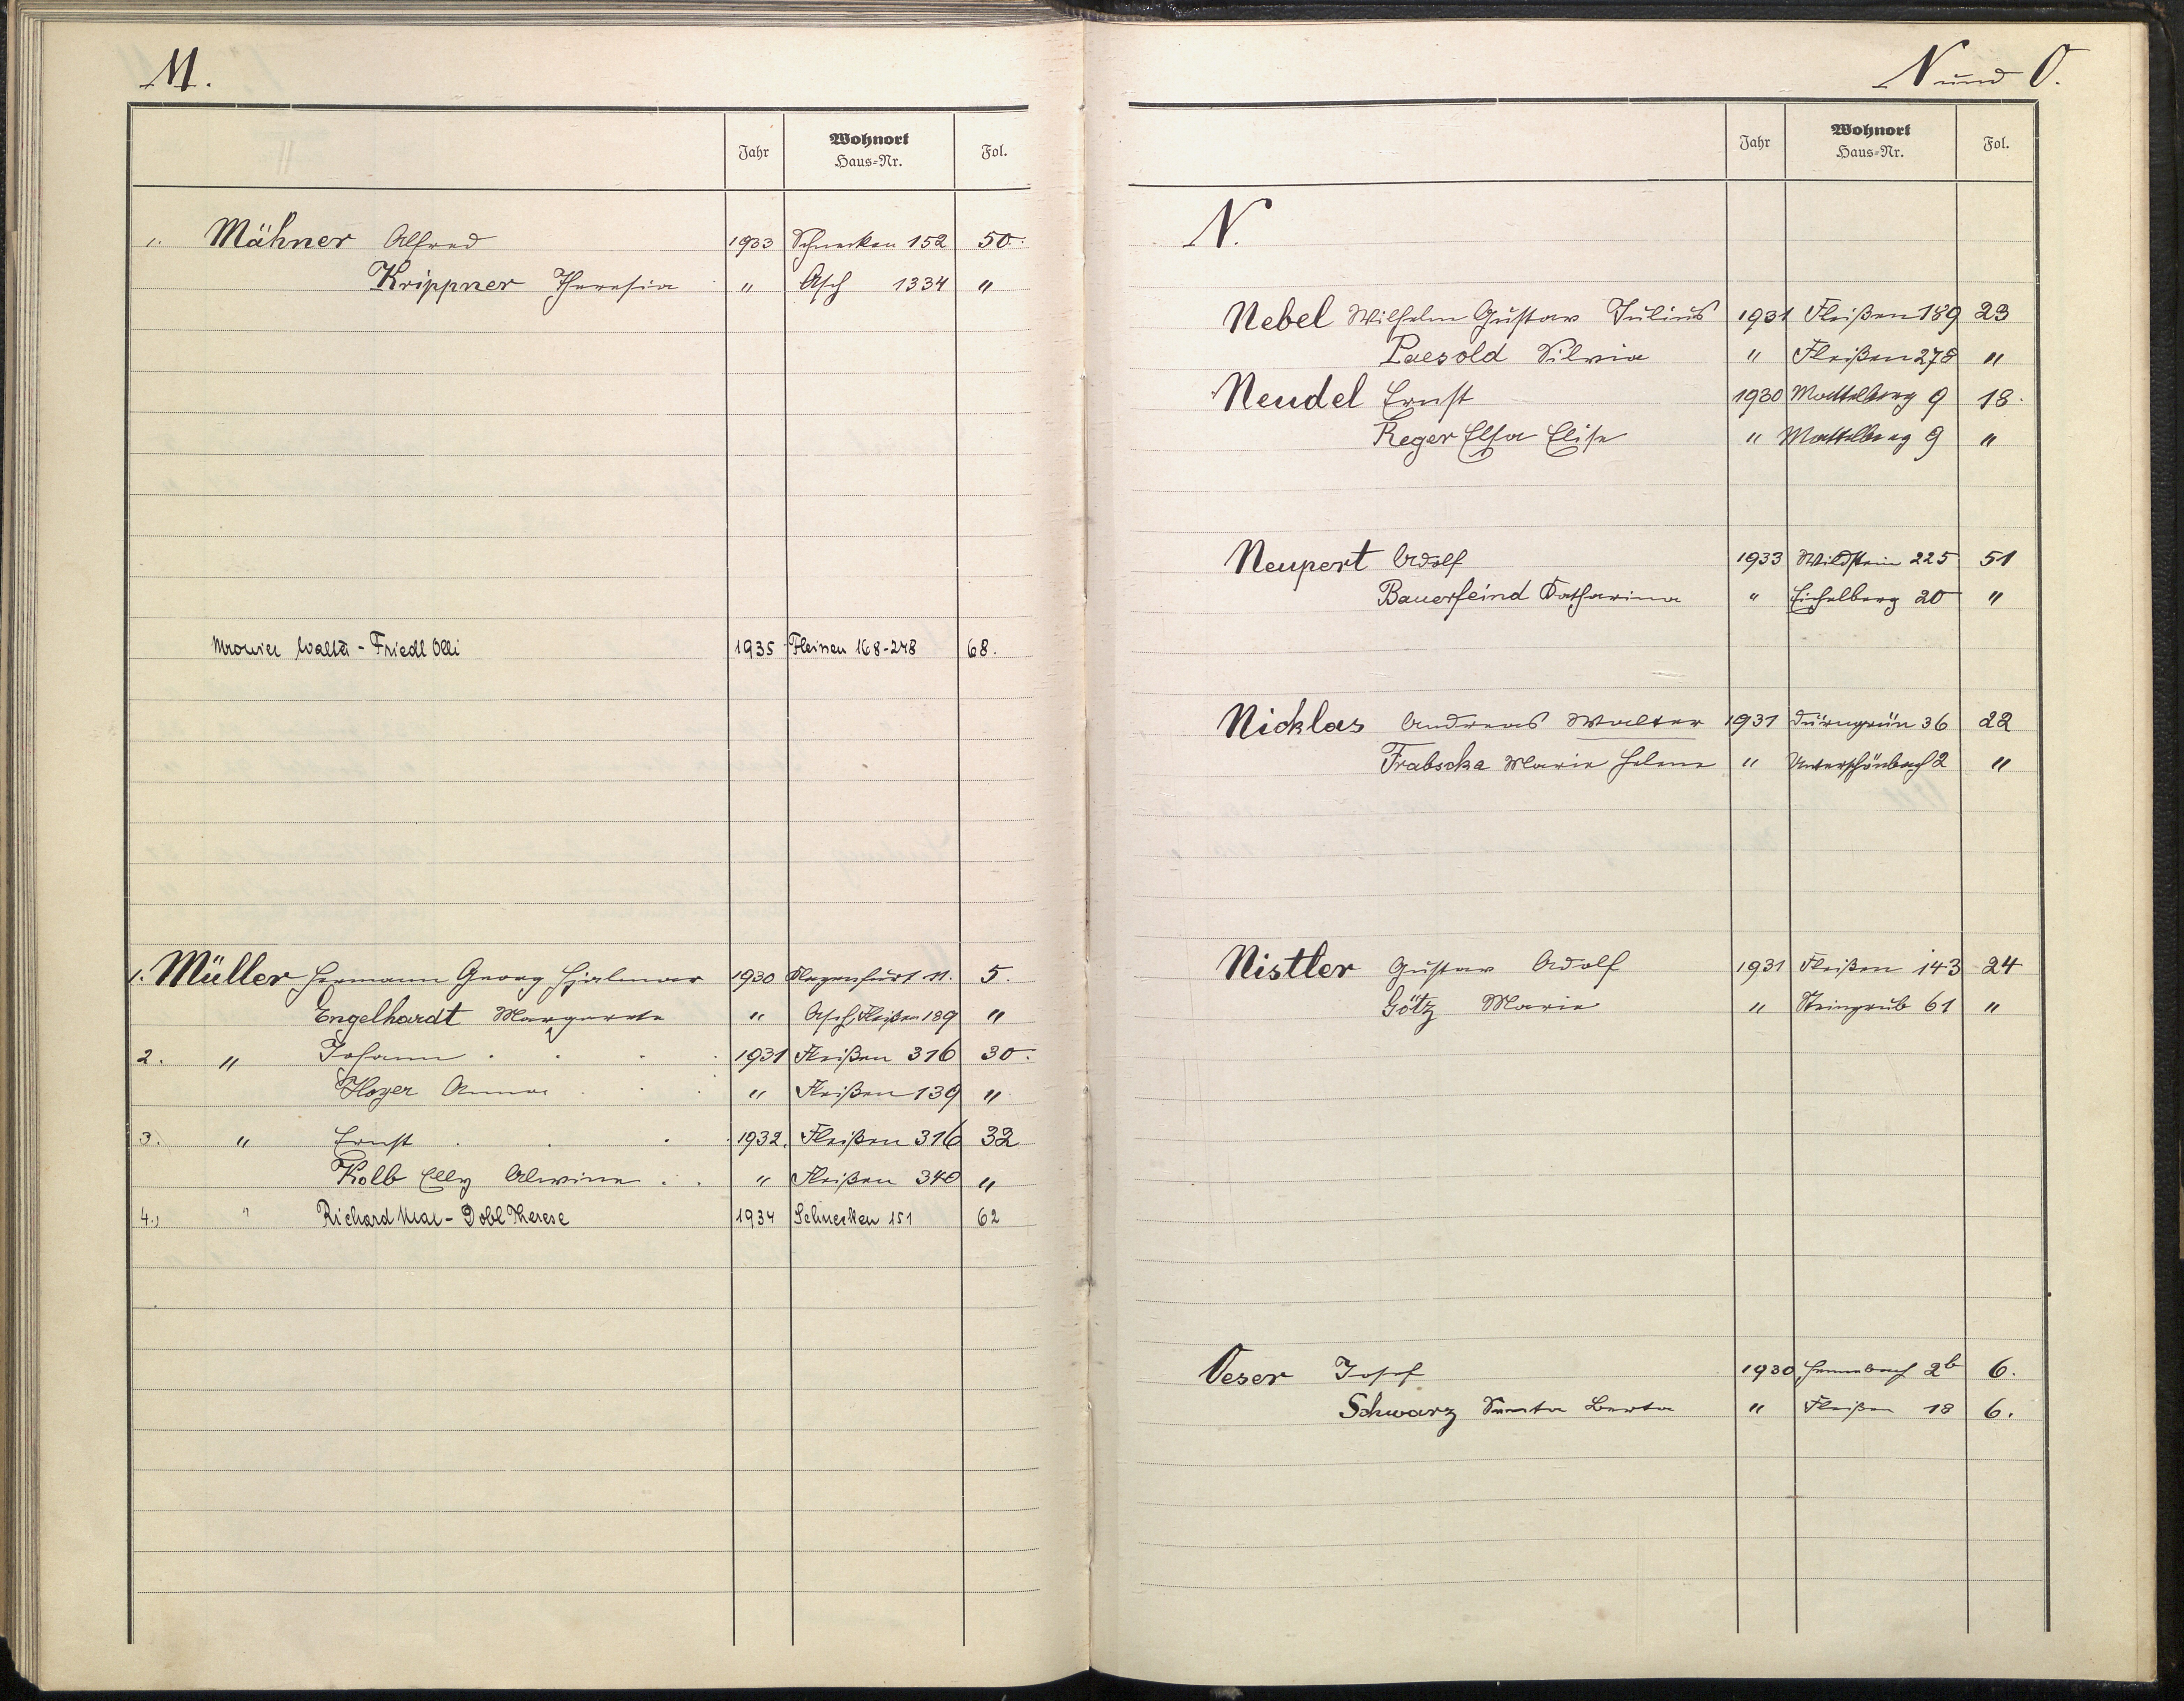 M.
Jahr Wohnort Haus-Nr. Fol.
1. Mähner Alfred 1933 Schnecken 152 50.
Krippner Theresia " Asch 1334 "
Walter - Friedl Olli 1935 Fleissen 168-248 68.
1. Müller Hermann Georg Hjalmar 1930 11. 5.
Engelhardt Margarete " Asch, Fleißen 189 "
2. " Johann . . . . 1931 Fleißen 316 30.
Hoyer Anna . . . " Fleißen 139 "
3. " Ernst . . . . 1932. Fleißen 316 32
Kolb Elly Alwine . . " Fleißen 340 "
4., " Richard Max - Dobl Therese 1934 Schnecken 151 62
N und O.
Jahr Wohnort Haus-Nr. Fol.
N.
Nebel Wilhelm Gustav Julius 1931 Fleißen 189 23
Paesold Silvia " Fleißen 278 "
Neudel Ernst 1930 Mattelberg 9 18.
Reger Elsa Elise " Mattelberg 9 "
Neupert Adolf 1933 Wildstein 225 51
Bauerfeind Katharina " Eichelberg 20 "
Nicklas Andreas Walter 1931 Dürngrün 36 22
Frabscka Marie Helene " Unterschönbach 2 "
Nistler Gustav Adolf 1931 Fleißen 143 24
Götz Marie " Steingrub 61 "
Oeser Josef 1930 2b 6.
Schwarz Berta " Fleißen 18 6.